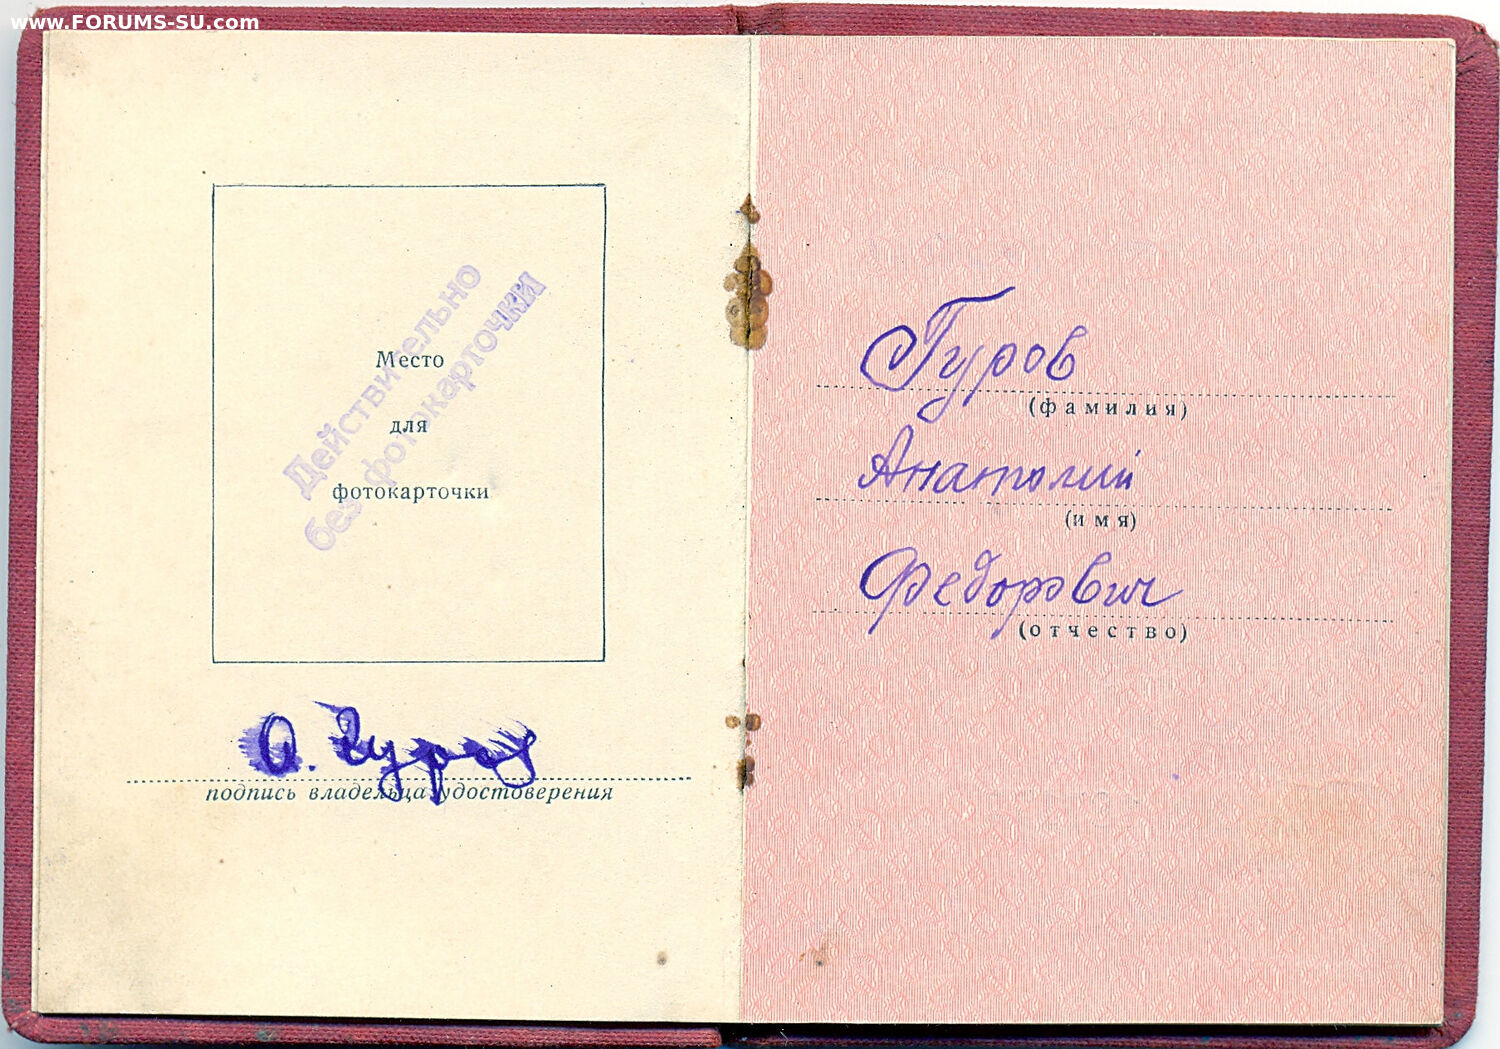 www.FORUMS-SU.com
Место
для
фотокарточки
Действительно
без фотокарточки
А. Гуров
подпись владельца удостоверения
Гуров
(фамилия)
Анатолий
(имя)
Федорович
(отчество)